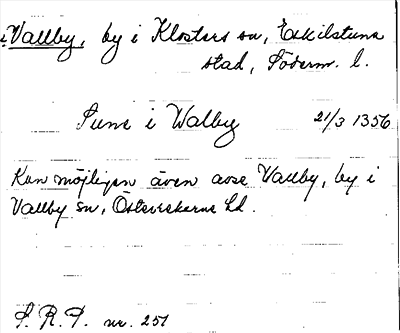 i Vallby, by i Klosters sn, Eskilstuna
stad, Söderm. l.
Sune i Walby 21/3 1356
Kan möjligen även avse Vallby, by i
Vallby sn, Österrekarne hd.
S. R. P. nr. 251